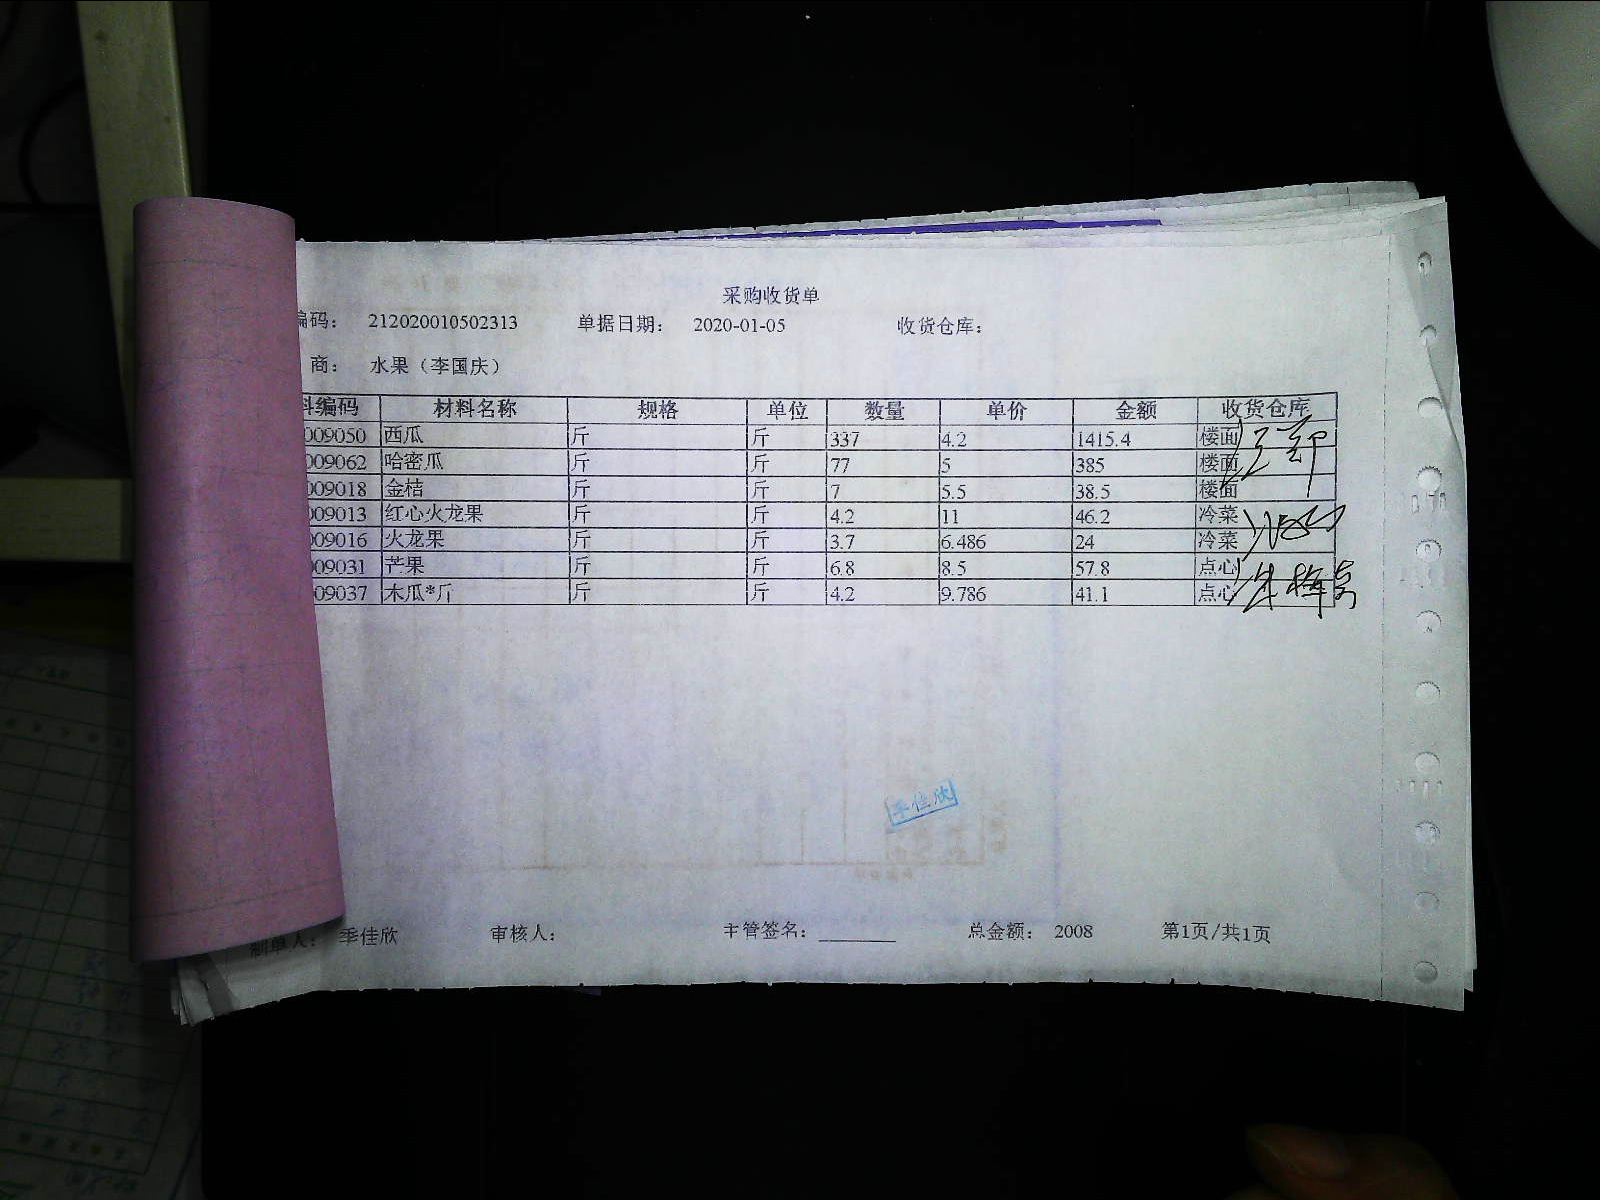 采购收货单
编码： 212020010502313 单据日期： 2020-01-05 收货仓库：
商： 水果（李国庆）
料编码 材料名称 规格 单位 数量 单价 金额 收货仓库
009050 西瓜 斤 斤 337 4.2 1415.4 楼面
009062 哈密瓜 斤 斤 77 5 385 楼面
009018 金桔 斤 斤 7 5.5 38.5 楼面
009013 红心火龙果 斤 斤 4.2 11 46.2 冷菜
009016 火龙果 斤 斤 3.7 6.486 24 冷菜
009031 芒果 斤 斤 6.8 8.5 57.8 点心
009037 木瓜*斤 斤 斤 4.2 9.786 41.1 点心
季佳欣
制单人： 季佳欣 审核人： 主管签名：________ 总金额： 2008 第1页/共1页